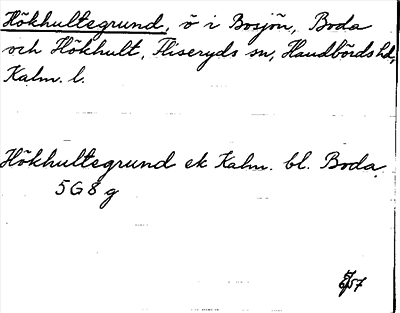 Hökhultegrund, ö i Bosjön, Boda
och Hökhult, Fliseryds sn, Handbörds hd,
Kalm. l.
Hökhultegrund ek Kalm. bl. Boda
5 G 8 g
57